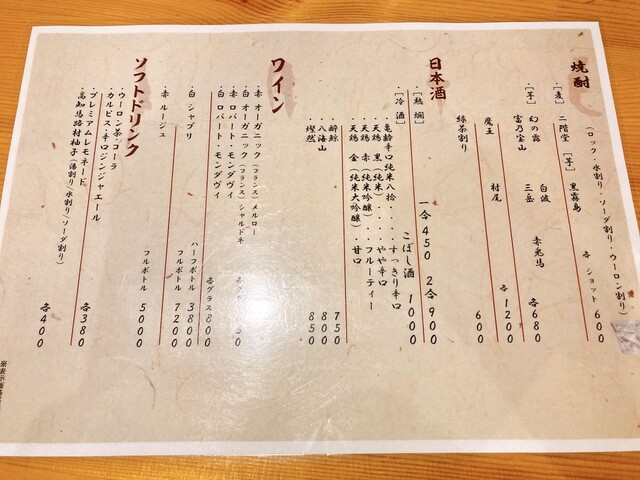 焼酎
(ロック・水割り・ソーダ割り・ウーロン割り)
[麦] 二階堂 [芋] 黒霧島 各 ショット 600
[芋] 幻の露 白波 赤兎馬
富乃宝山 三岳 各680
魔王 村尾 各1200
緑茶割り 600
日本酒
[熱燗] 一合450 二合900
[冷酒] こぼし酒 1000
亀齢辛口純米八拾・・・・すっきり辛口
天鶏 黒(純米)・・・・やや辛口
天鶏 赤(純米吟醸)・・フルーティー
天鶏 金(純米大吟醸)・甘口
酔鯨 750
八海山 800
燦然 850
ワイン
・赤 オーガニック(フランス)メルロー
・白 オーガニック(フランス)シャルドネ
・赤 ロバート・モンダヴィ
・白 ロバート・モンダヴィ 各グラス800
・白 シャブリ ハーフボトル 3800
フルボトル 7200
・赤 ルージュ フルボトル 5000
ソフトドリンク
・ウーロン茶・コーラ
・カルピス・辛口ジンジャエール 各380
・プレミアムレモネード
・高知馬路村柚子(湯割り/水割り/ソーダ割り) 各400